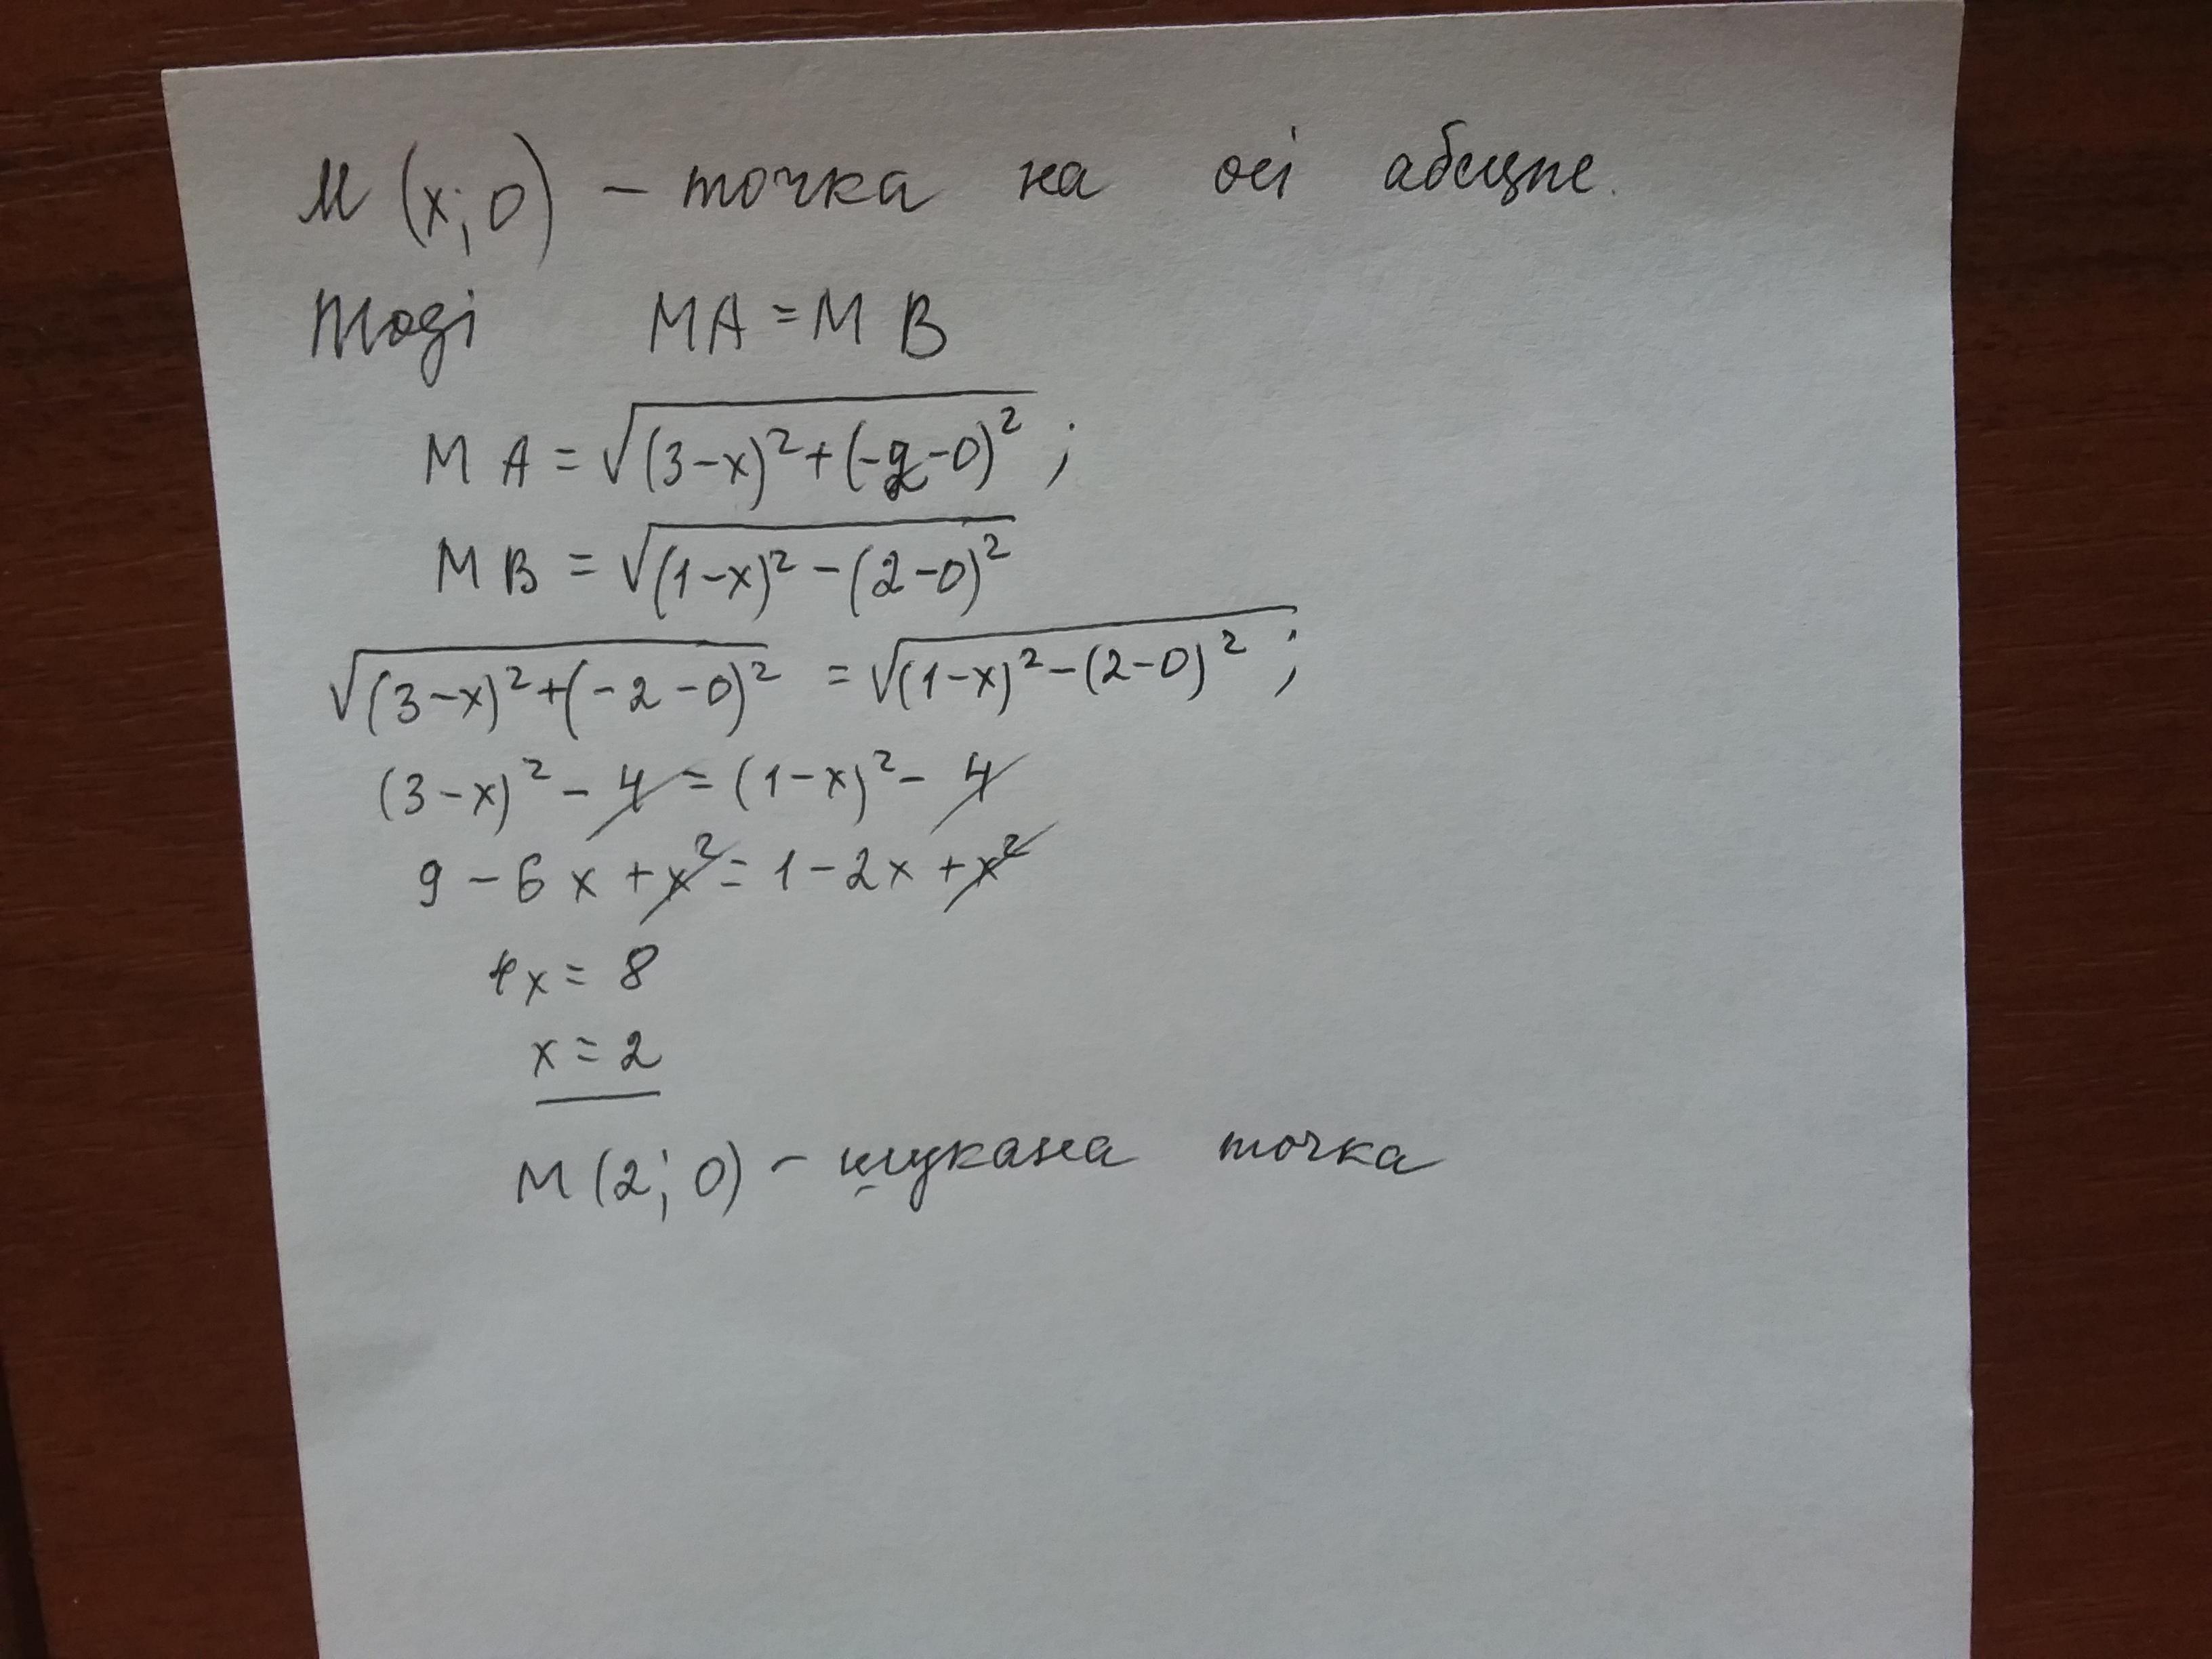 M (x; 0) – точка на осі абсцис.
Тоді MA = MB
MA = √((3-x)² + (-2-0)²) ;
MB = √((1-x)² - (2-0)²)
√((3-x)² + (-2-0)²) = √((1-x)² - (2-0)²) ;
(3-x)² - 4 = (1-x)² - 4
9 - 6x + x² = 1 - 2x + x²
4x = 8
x = 2
M (2; 0) – шукана точка